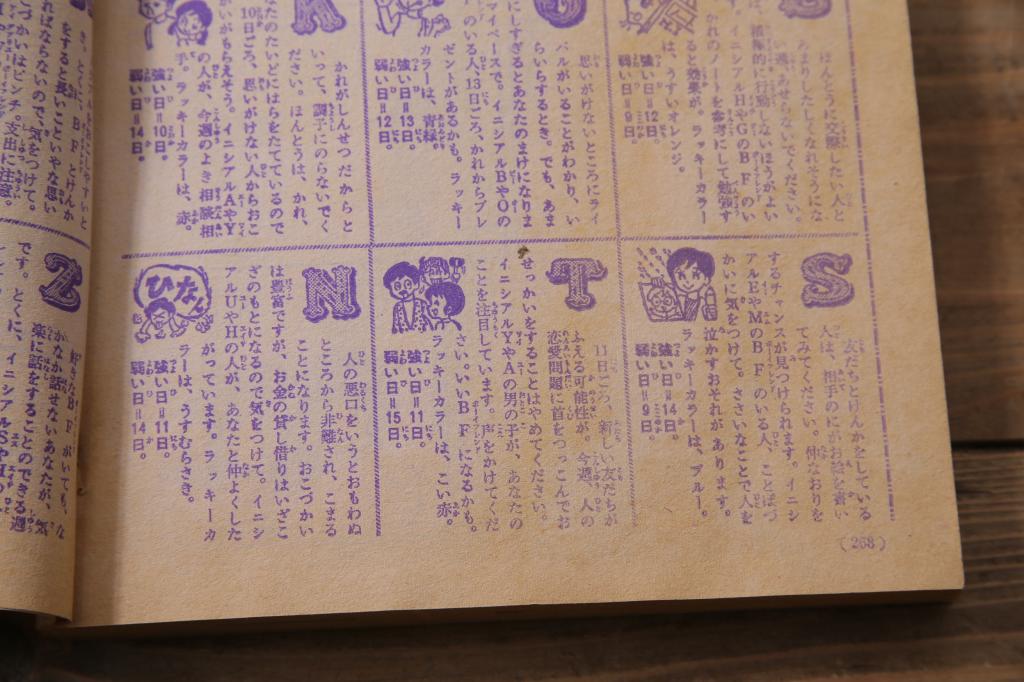 ほんとうに交際したい人と
い週。あせらないでください。
積極的に行動しないほうがよい
イニシアルHやGのBFのい
かれのノートを参考にして勉強す
ると効果が。ラッキーカラー
は、うすいオレンジ。
強い日＝12日。
弱い日＝9日。
思いがけないところにライ
バルがいることがわかり、い
らいらするとき。でも、あま
にしすぎるとあなたのまけになりま
マイペースで。イニシアルBやOの
のいる人、13日ごろ、かれからプレ
ゼントがあるかも。ラッキー
カラーは、青緑
強い日＝13日。
弱い日＝12日。
K
かれがしんせつだからと
いって、調子にのらないでく
ださい。ほんとうは、かれ、
なたのたいどにはらをたてているので
10日ごろ、思いがけない人からおこ
かいがもらえそう。イニシアルAやY
の人が、今週のよき相談相
手。ラッキーカラーは、赤。
強い日＝10日。
弱い日＝14日。
S
友だちとけんかをしている
人は、相手のにがお絵を書い
てみてください。仲なおりを
するチャンスが見つけられます。イニシ
アルEやMのBFのいる人、ことばづ
かいに気をつけて。ささいなことで人を
泣かすおそれが、あります。
ラッキーカラーは、ブルー。
強い日＝14日。
弱い日＝9日。
T
11日ごろ、新しい友だちが
ふえる可能性が。今週、人の
恋愛問題に首をつっこんでお
せっかいをすることはやめてください。
イニシアルYやAの男の子が、あなたの
ことを注目しています。声をかけてくだ
さい。いいBFになるかも。
ラッキーカラーは、こい赤。
強い日＝11日。
弱い日＝15日。
N
人の悪口をいうとおもわぬ
ところから非難され、こまる
ことになります。おこづかい
は豊富ですが、お金の貸し借りはいざこ
ざのもとになるので気をつけて。イニシ
アルUやHの人が、あなたと仲よくした
がっています。ラッキーカ
ラーは、うすむらさき。
強い日＝11日。
弱い日＝14日。
ひなん
をすると長いこといやな思い
ればならないので、気をつけて。
づかいはピンチ。支出に注意。
Z
好きなBFがいても、な
かなか話せないあなたが、気
楽に話をすることのできる週
です。とくに、イニシアルSや
(268)